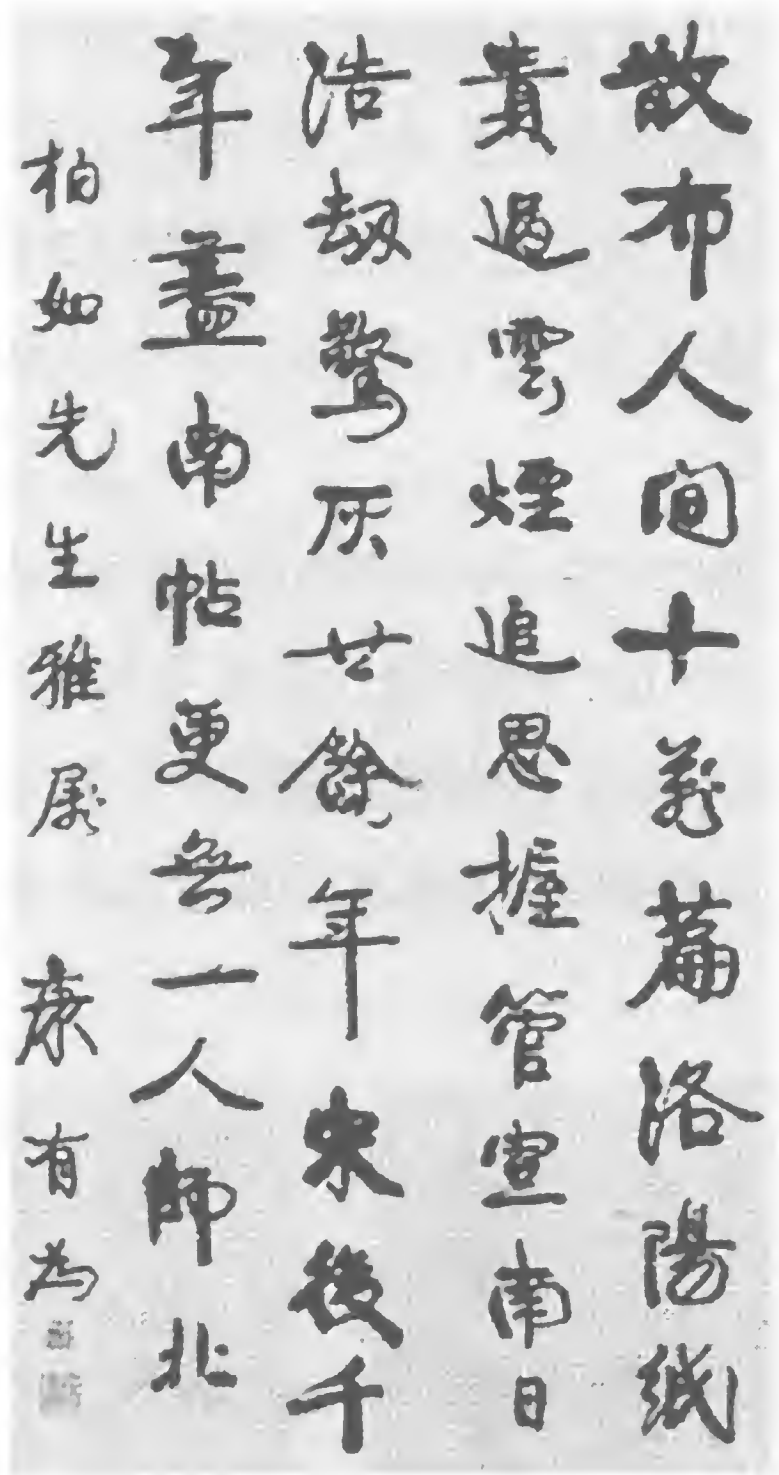 散布人間十萬篇洛陽紙
貴過雲煙追思握管宣南日
浩劫驚灰廿餘年宋後千
年盡南帖更無一人師北
柏如先生雅屬 康有為